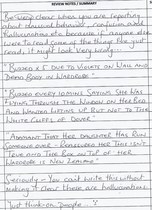 REVIEW NOTES / SUMMARY
Be very clear when you are reporting
about unusual behaviour, confusion and
hallucinations etc because if anyone else
were to read some of the things you put
inside, it might look very badly...
"Buzzed x 5 due to Violets on Wall and
Dead Body in Wardrobe"
"Buzzed every 10 mins says she was
flying through the window on her bed
and wanted lifting up but not to the
white cliffs of Dover"
"Adamant that her daughter has run
someone over - reassured her this isn't
true and the box on top of her
wardrobe is New Zealand"
Seriously - you can't write this without
making it clear these are hallucinations.
Just think on people